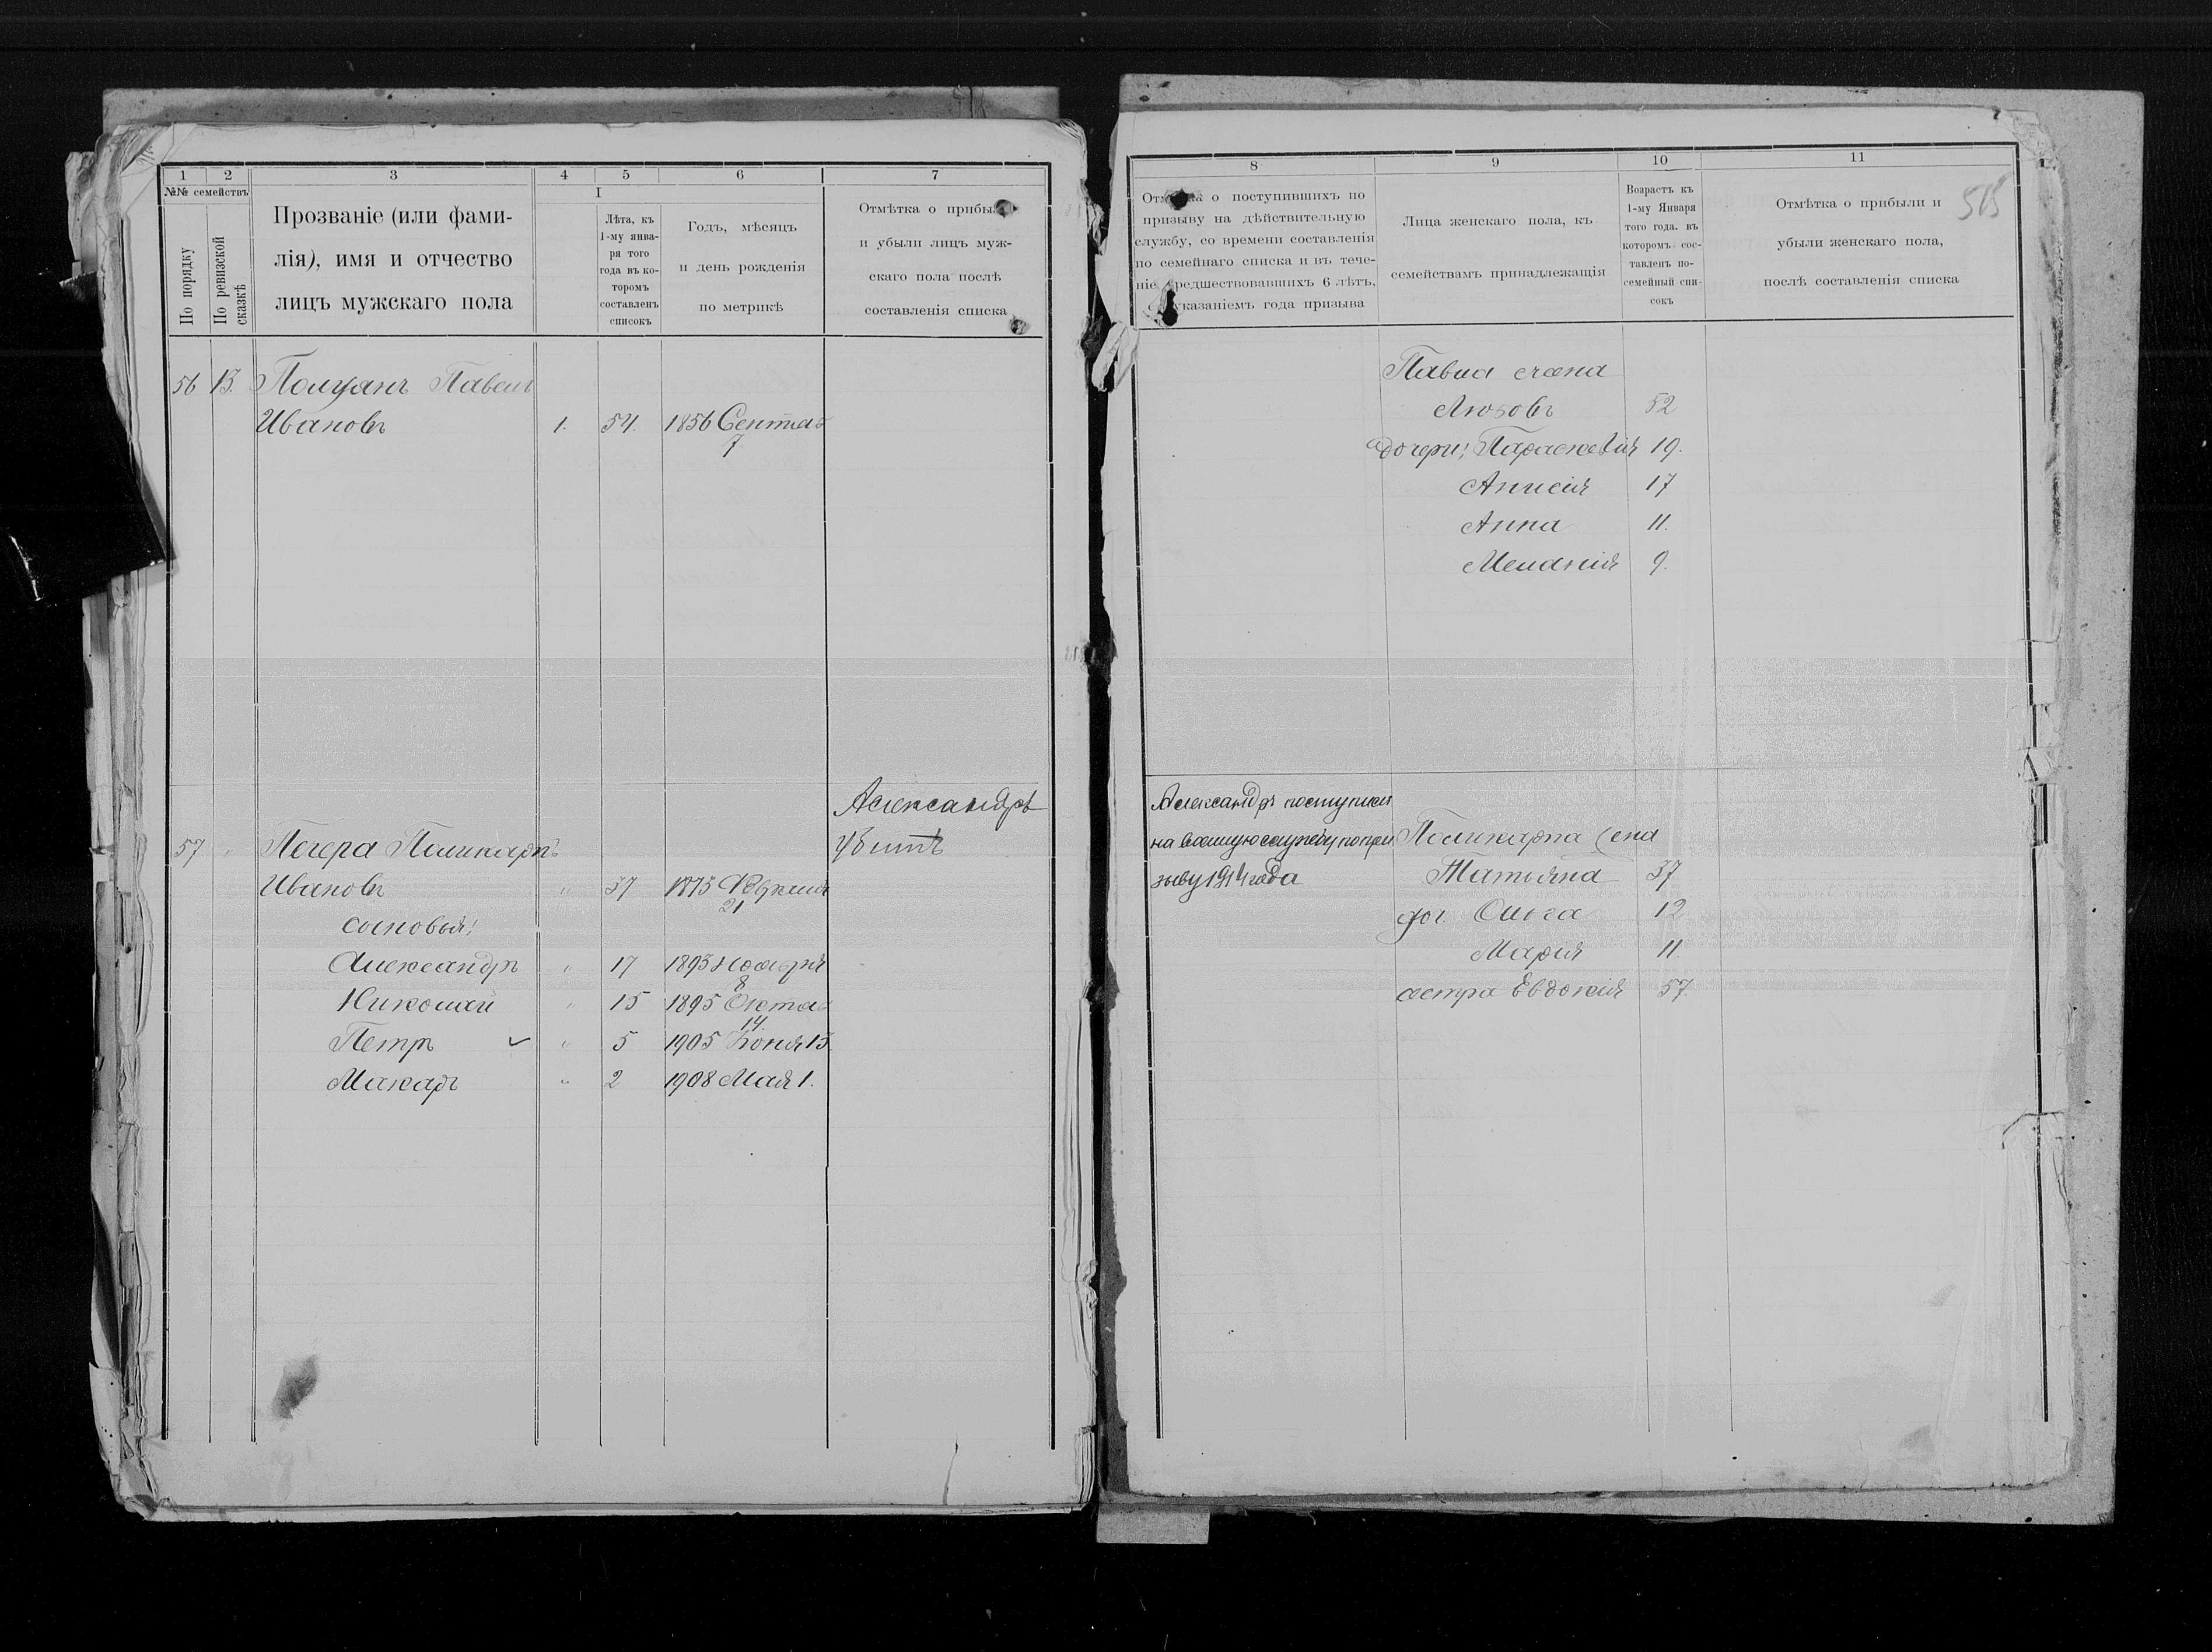 1 2 3 4 5 6 7
№№ семействъ
По порядку
По ревизской сказкѣ
Прозваніе (или фами-
лія), имя и отчество
лицъ мужскаго пола
I
Лѣта, къ
1-му янва-
ря того
года въ ко-
торомъ
составленъ
списокъ
Годъ, мѣсяцъ
и день рожденія
по метрикѣ
Отмѣтка о прибы
и убыли лицъ муж-
скаго пола послѣ
составленія списка
56 13. Полуянъ Павелъ
Ивановъ 1. 54. 1856 Сентяб
7
Александръ
57 " Печера Поликарпъ убитъ
Ивановъ " 37 1873
21
сыновья:
Александръ " 17 1893 Ноября
8
Николай " 15 1895 Октяб
14.
Петръ " 5 1905 Іюня 13
Макаръ " 2 1908 Мая 1.
8 9 10 11
Отмѣтка о поступившихъ по
призыву на дѣйствительную
службу, со времени составленія
по семейнаго списка и въ тече-
ніе предшествовавшихъ 6 лѣтъ,
указаніемъ года призыва
Лица женскаго пола, къ
семействамъ принадлежащія
Возрастъ къ
1-му Января
того года. въ
которомъ сос-
тавленъ по-
семейный спи-
сокъ
Отмѣтка о прибыли и
убыли женскаго пола,
послѣ составленія списка
515
Павла жена
Любовь 52
дочери: Параскевія 19.
Анисія 17
Анна 11.
Меланія 9.
Александръ поступил
на военную службу по при Поликарпа жена
зыву 1914 года Татьяна 37
доч. Ольга 12
Марія 11.
сестра Евдокія 57.